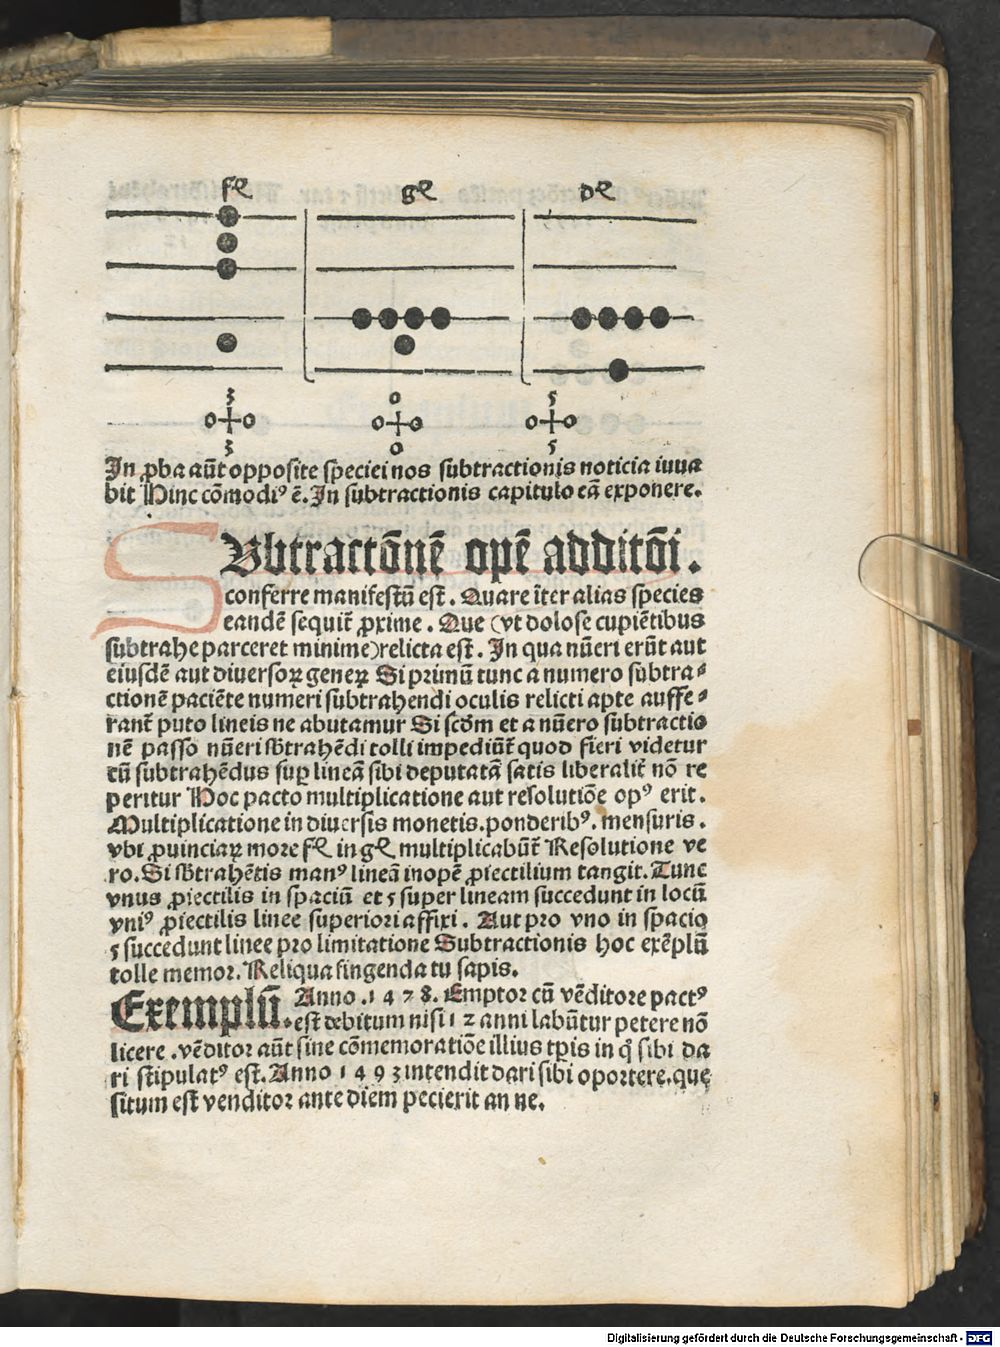 fl gl dl
3 0 5
0 0 0 0 0 0
3 0 5
In ꝓba aūt opposite speciei nos subtractionis noticia iuua
bit Hinc cōmodiꝰ ē. In subtractionis capitulo eā exponere.
SVbtractōnē opē additōi.
conferre manifestū est. Quare īter alias species
eandē sequit᷑ ꝓxime. Que (vt dolose cupiētibus
subtrahe parceret minime) relicta est. In qua nūeri erūt aut
eiusdē aut diuersoꝝ geneꝝ Si primū tunc a numero subtra⸗
ctionē paciēte numeri subtrahendi oculis relicti apte auffe⸗
rant᷑ puto lineis ne abutamur Si scd̄m et a nūero subtractio
nē passo nūeri sb̄trahēdi tolli impediūt᷑ quod fieri videtur
cū subtrahēdus suꝑ lineā sibi deputatā satis liberalit᷑ nō re
peritur Hoc pacto multiplicatione aut resolutiōe opꝰ erit.
Multiplicatione in diuersis monetis. ponderibꝰ. mensuris.
vbi ꝓuinciaꝝ more fl in gl multiplicabūt᷑ Resolutione ve
ro. Si sb̄trahētis manꝰ lineā inopē ꝓiectilium tangit. Tunc
vnus ꝓiectilis in spaciū et 5 super lineam succedunt in locū
vniꝰ ꝓiectilis linee superiori affixi. Aut pro vno in spacio
5 succedunt linee pro limitatione Subtractionis hoc exēplū
tolle memor. Reliqua fingenda tu sapis.
Exemplū. Anno .1478. Emptor cū vēditore pactꝰ
est debitum nisi 12 anni labūtur petere nō
licere. vēditor aūt sine cōmemoratiōe illius tꝑis in q̊ sibi da
ri stipulatꝰ est. Anno 1493 intendit dari sibi oportere. que
situm est venditor ante diem pecierit an ne.
Digitalisierung gefördert durch die Deutsche Forschungsgemeinschaft - DFG